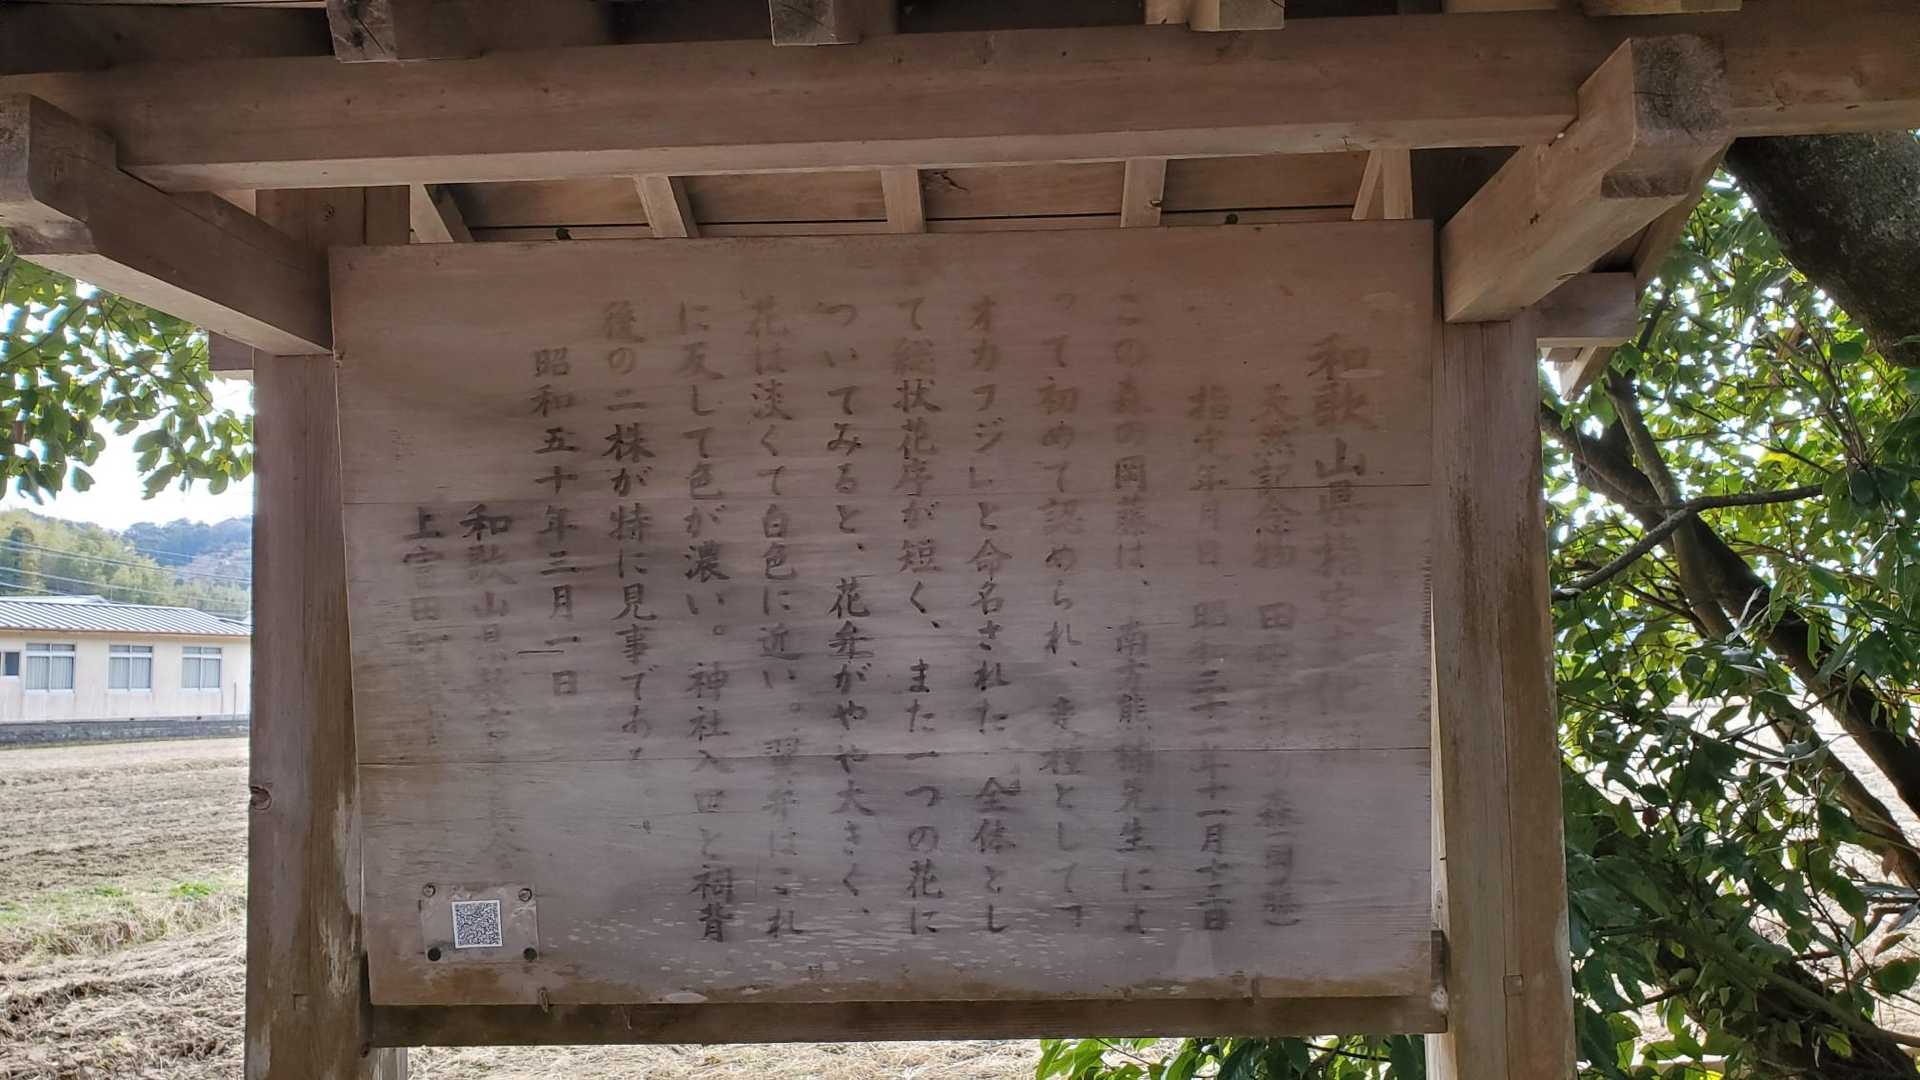 和歌山県指定文化財
天然記念物　田　　　の森(岡藤)
指定年月日　昭和三十一年十一月十二日
この森の岡藤は、南方熊楠先生によ
って初めて認められ、変種としてっ
オカフジ」と命名された。全体とし
て総状花序が短く、また一つの花に
ついてみると、花弁がやや大きく、
花は淡くて白色に近い。翼弁はこれ
に反して色が濃い。神社入口と祠背
後の二株が特に見事である。
昭和五十年三月一日
和歌山県教育委員会
上富田町